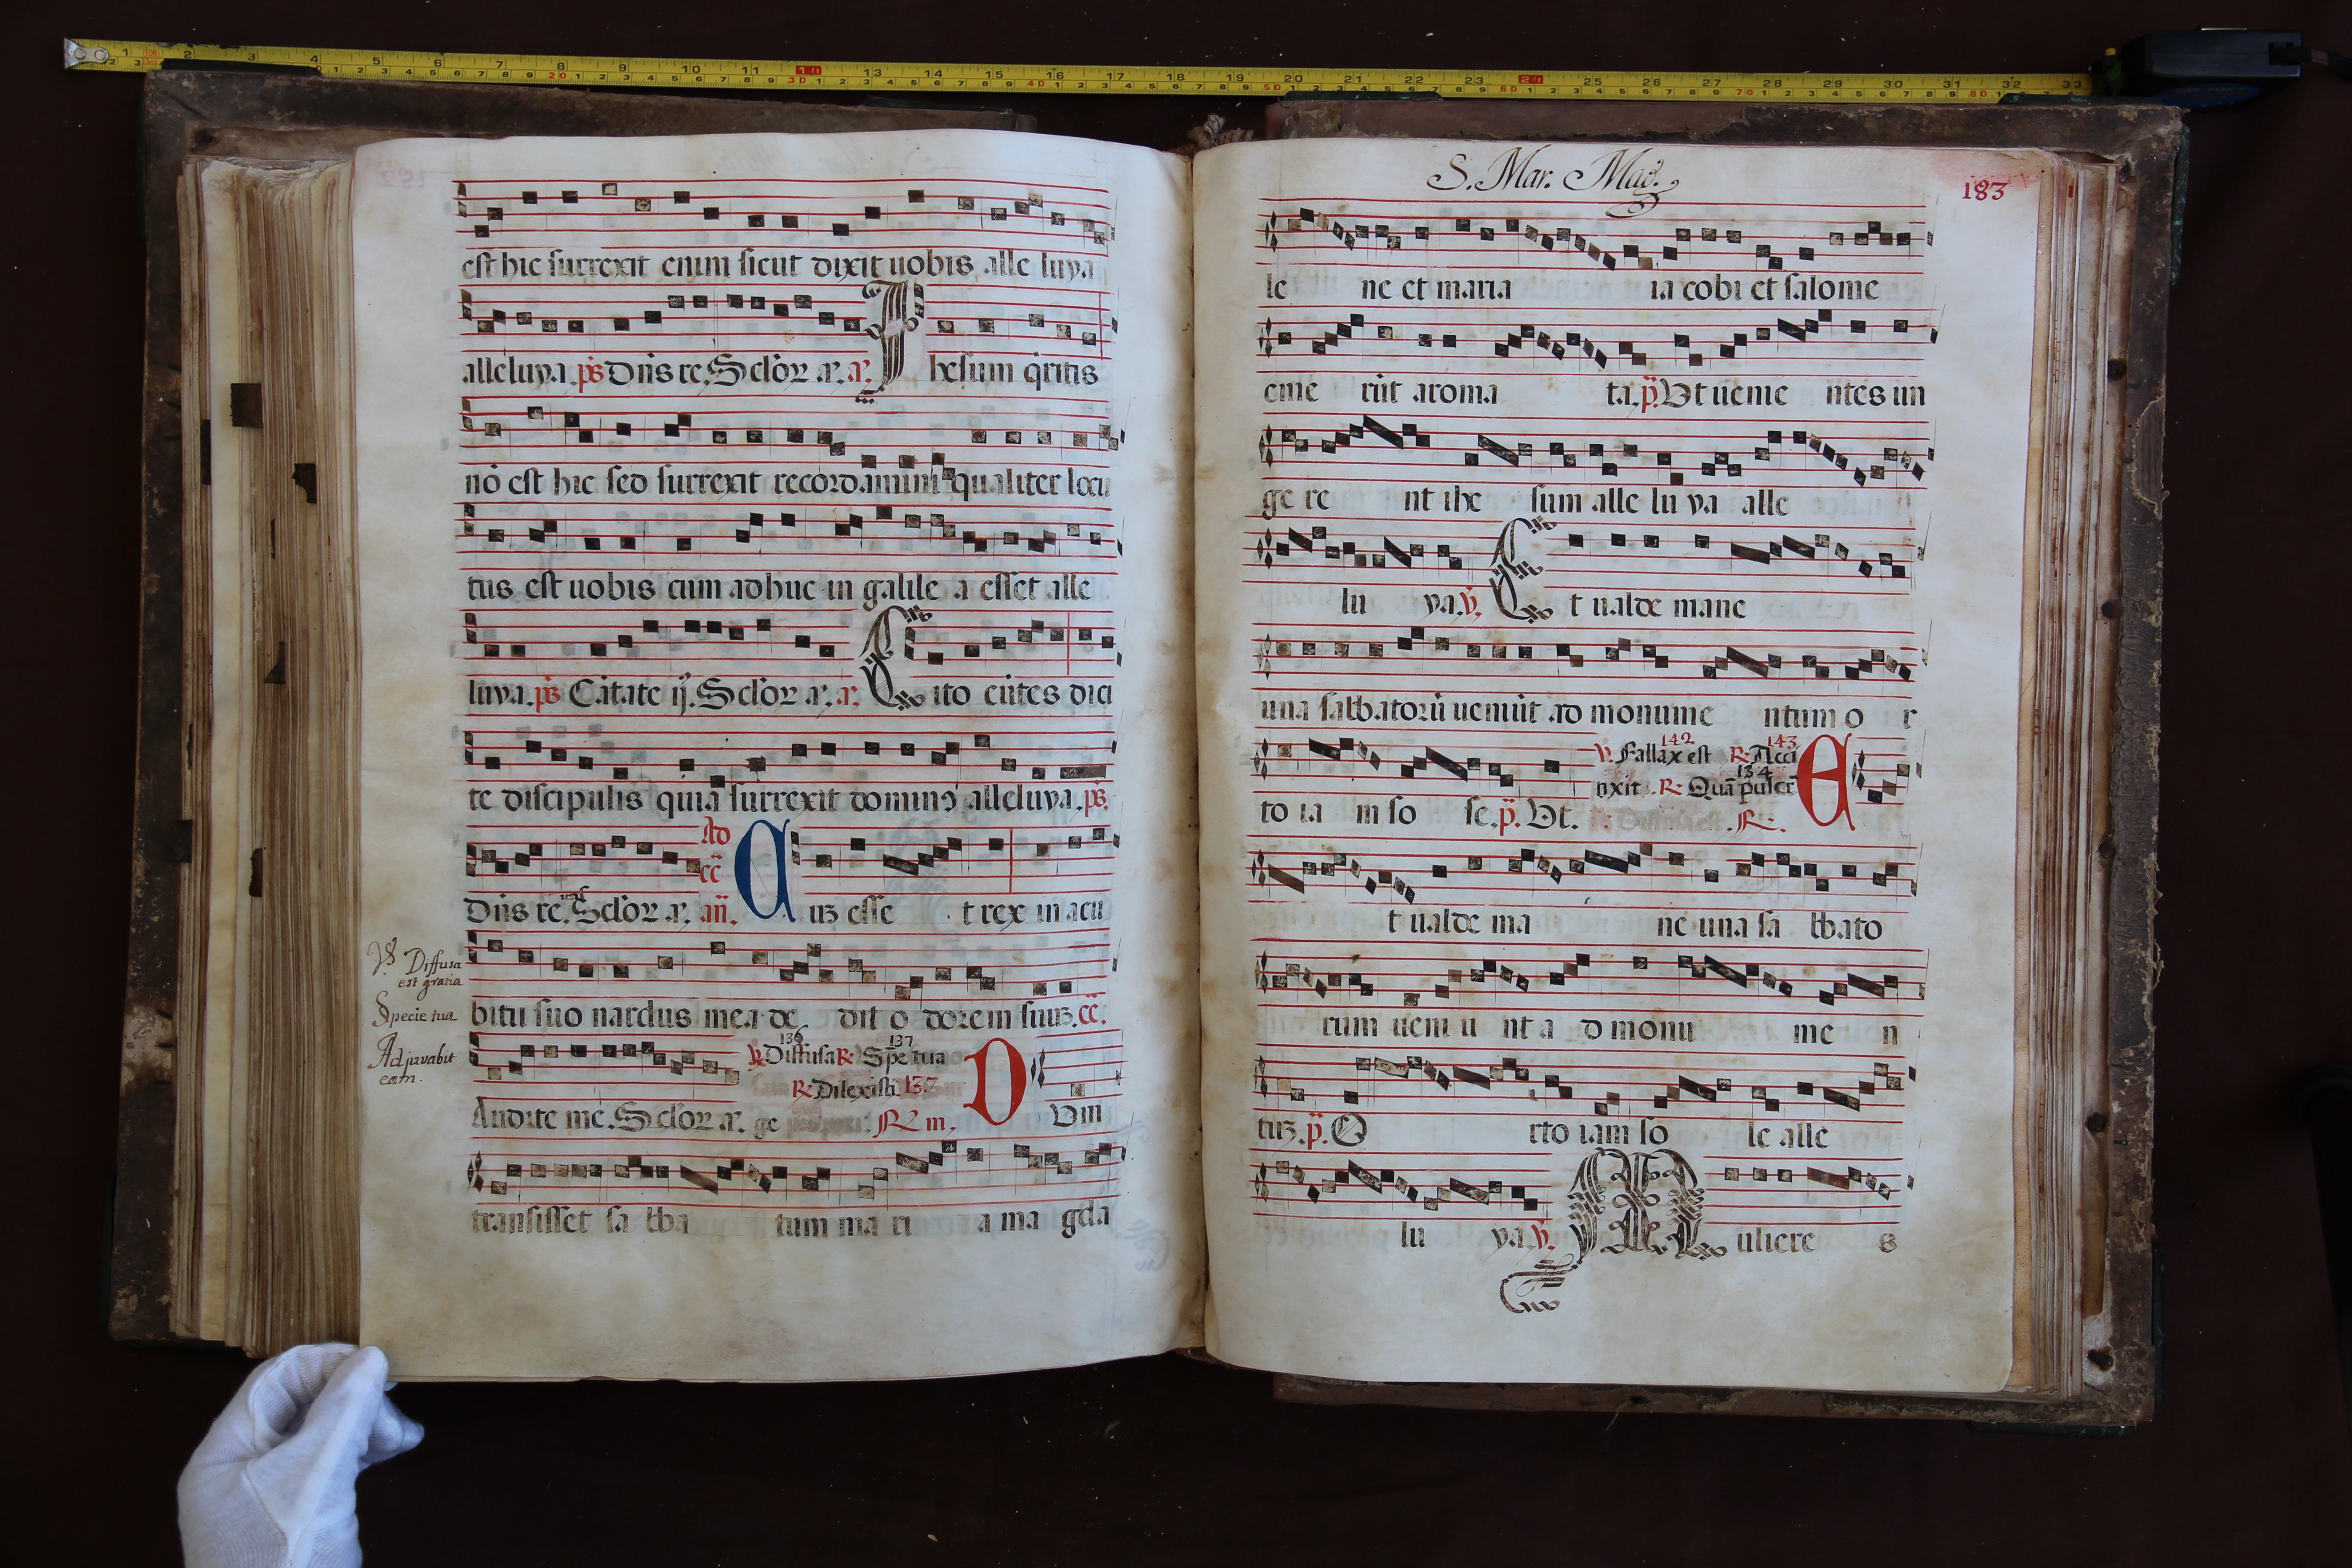 est hic surrexit enim sicut dixit uobis alle luya
alleluya. ps Dñs re. Sclor a. a. Ihesum qritis
nō est hic sed surrexit recordamini qualiter locu
tus est uobis cum adhuc in galile a esset alle
luya. ps Cātate ij. Sclor a. a. Cito eūtes dici
te discipulis quia surrexit dominꝰ alleluya. ps.
Dñs re. Sclor a. añ. Ad cc Auz esse t rex in acu
℣ Diffusa
est gratia
Specie tua
Adjuvabit
eam.
bitu suo nardus mea de dit o dorem suuz. cc.
136 137
℣. Diffusa ℞. Spē tua
℞. Dilexisti 137
Audite me. Sclor a. ge ℞ iii. D Vm
transisset sa bba tum ma ri a ma gda
S. Mar. Mad.
183
le ne et maria ia cobi et salome
eme rūt aroma ta. p̄. Vt uenie ntes un
ge re nt ihe sum alle lu ya alle
lu ya. ℣. Et ualde mane
una sabbatorū ueniūt ad monume ntum o r
142 143
℣. Fallax est ℞. Acci
134
nxit. ℞. Quā pulcr
to ia m so le. p̄. Vt. ℞. E
t ualde ma ne una sa bbato
rum ueni u nt a d monu me n
tuz. p̄. O rto iam so le alle
lu ya. ℣. Muliere s